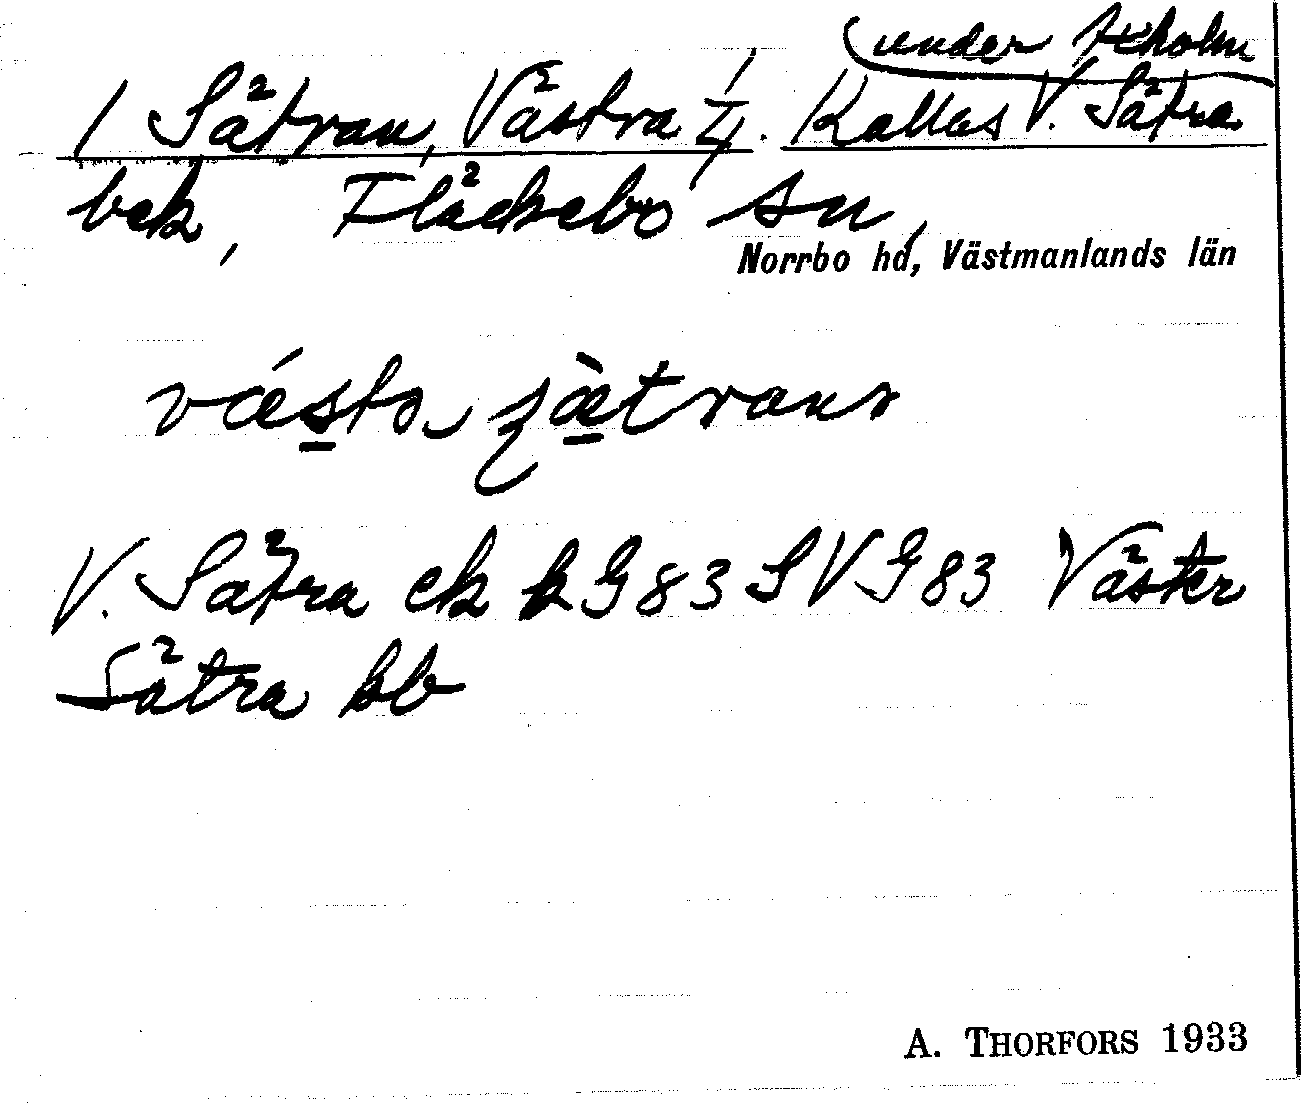 (under Axholm
1 Sätran, Västra 1/4. Kallas V. Sätra
bek, Fläckebo sn,
Norrbo hd, Västmanlands län
væsta sætrans
V. Sätra ek k G 83 S V G 83 Väster
Sätra bb
A. THORFORS 1933